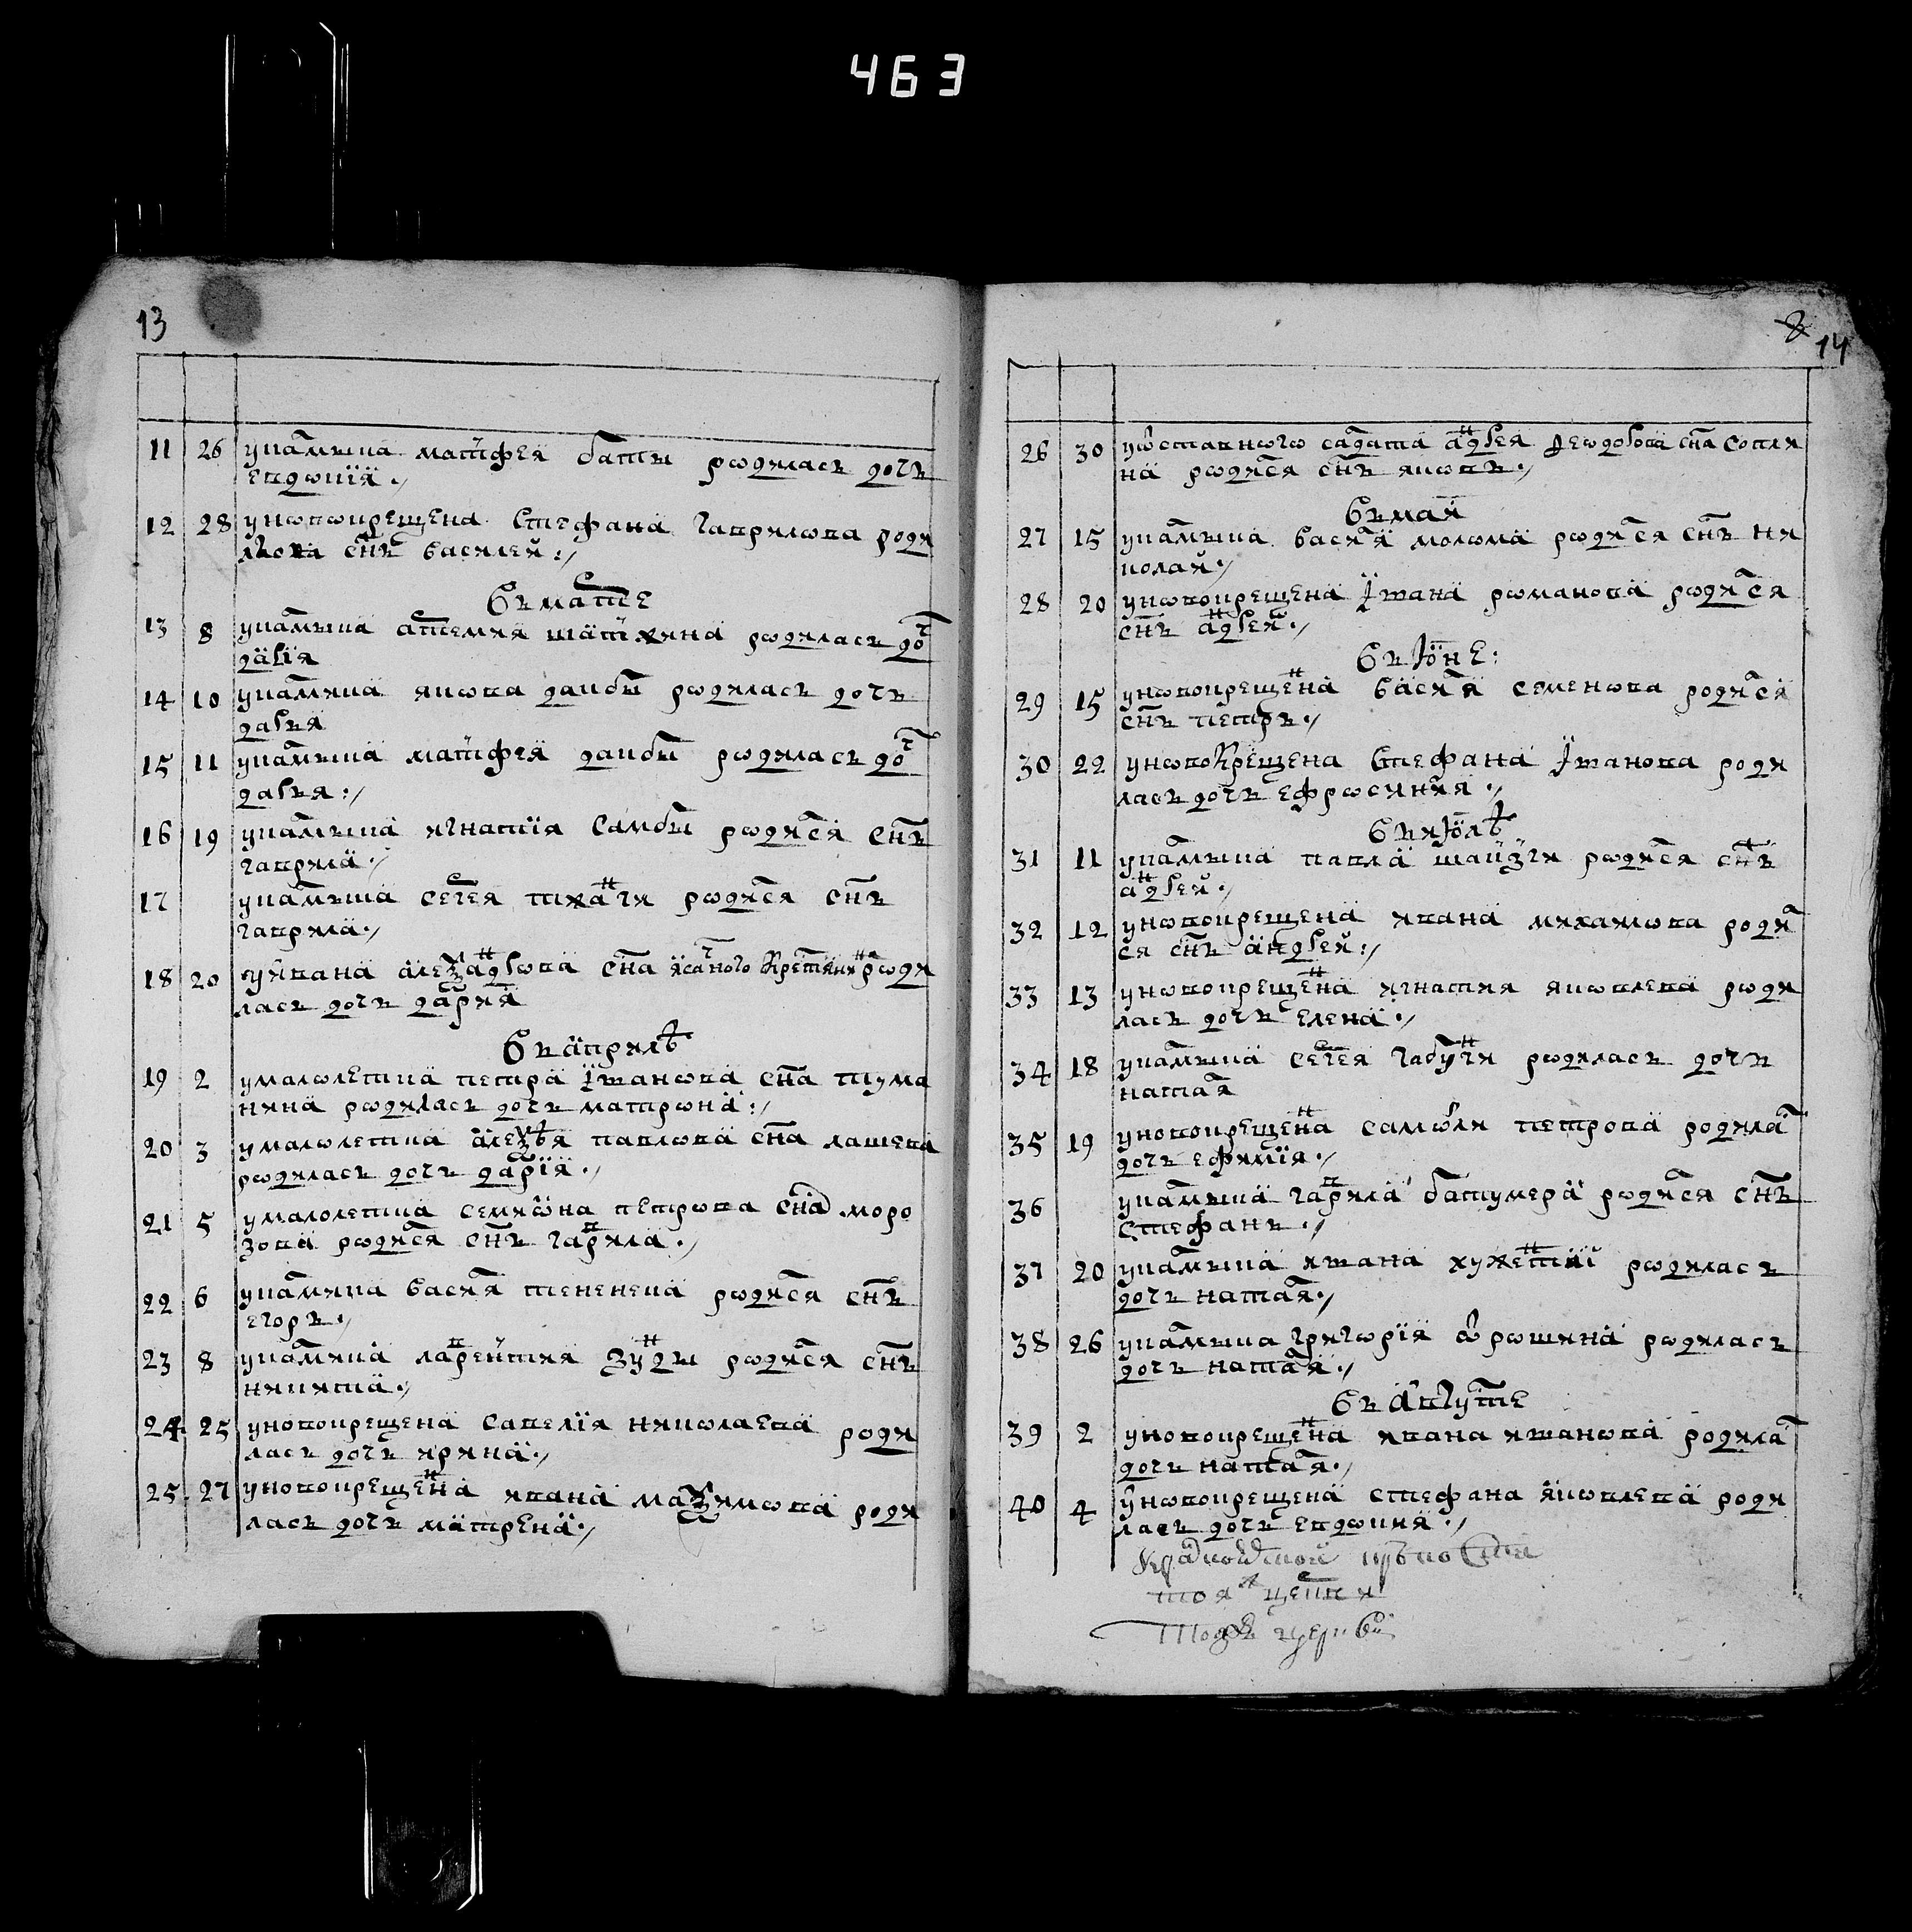 463
13
11 26 укалмыка матфея баты родилась дочь
евдокїя
12 28 уновокрещена Стефана гаврилова роди
лься снъ василей
Въ марте
13 8 укалмыка артемия родилась доч
дарїя
14 10 укалмика якова дакбы родилась дочь
дарья
15 11 укалмыка матфея дакбы родилась доч
дарья
16 19 укалмыка игнатїя Самбы родился снъ
гаврила
17 укалмыка сергея родился снъ
гаврила
18 20 уивана алеѯандрова сна ясачного крестьянина роди
лась дочь дария
Въ априлѣ
19 2 умалолетка петра їванова сна тума
нина родилась дочь матрона
20 3 умалолетка алеѯѣя павлова сна лашева
родилась дочь дарїя
21 5 умалолетка семиона петрова сна моро
зова родился снъ гаврила
22 6 укалмика василя тененека родился снъ
егоръ
23 8 укалмика лаврентия зунды родился снъ
никита
24 25 уновокрещена савелїя николаева роди
лась дочь ирина
25 27 уновокрещена ивана маѯимова роди
лась дочь матрена
14
26 30 уѿставного салдата андрея ѳеодорова сна сопля
на родился снъ яковъ
Въ маїи
27 15 укалмыка василя молома родился снъ ни
колай
28 20 уновокрещена їванa романова родился
снъ андрей
Въ Їюне
29 15 уновокрещена василя семенова родился
снъ петръ
30 22 уновокрещена Стефана їванова роди
лась дочь ефросиния
Въ июлѣ
31 11 укалмыка павла родился снъ
андрей
32 12 уновокрещена ивана михаилова родил
ся снъ андрей
33 13 уновокрещена игнатия яковлева роди
лась дочь елена
34 18 укалмыка сергея габунги родилась дочь
наталя
35 19 уновокрещена самойли петрова родилас
дочь ефимїя
36 укалмыка гаврила батумера родился снъ
стефанъ
37 20 укалмыка ивана родилась
дочь наталя
38 26 укалмыка григорїя ѡрошина родилась
дочь наталя
Въ августе
39 2 уновокрещена ивана иванова родилас
дочь наталя
40 4 уновокрещена стефана яковлева роди
лась дочь евдокия
тоя церкви